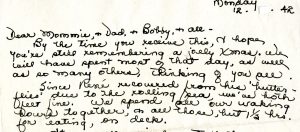 Monday
12. . 42
Dear Mommie, & Dad & Bobby, & all -
By the time you receive this, I hope
you're still remembering a jolly Xmas. We
will have spent most of that day, as well
as so many others, thinking of you all.
Since René recovered from his "butter-
flies" due to the rolling sea, we've both
felt fine. We spend all our waking
hours together, all those but 1½ hrs.
for eating, on deck.